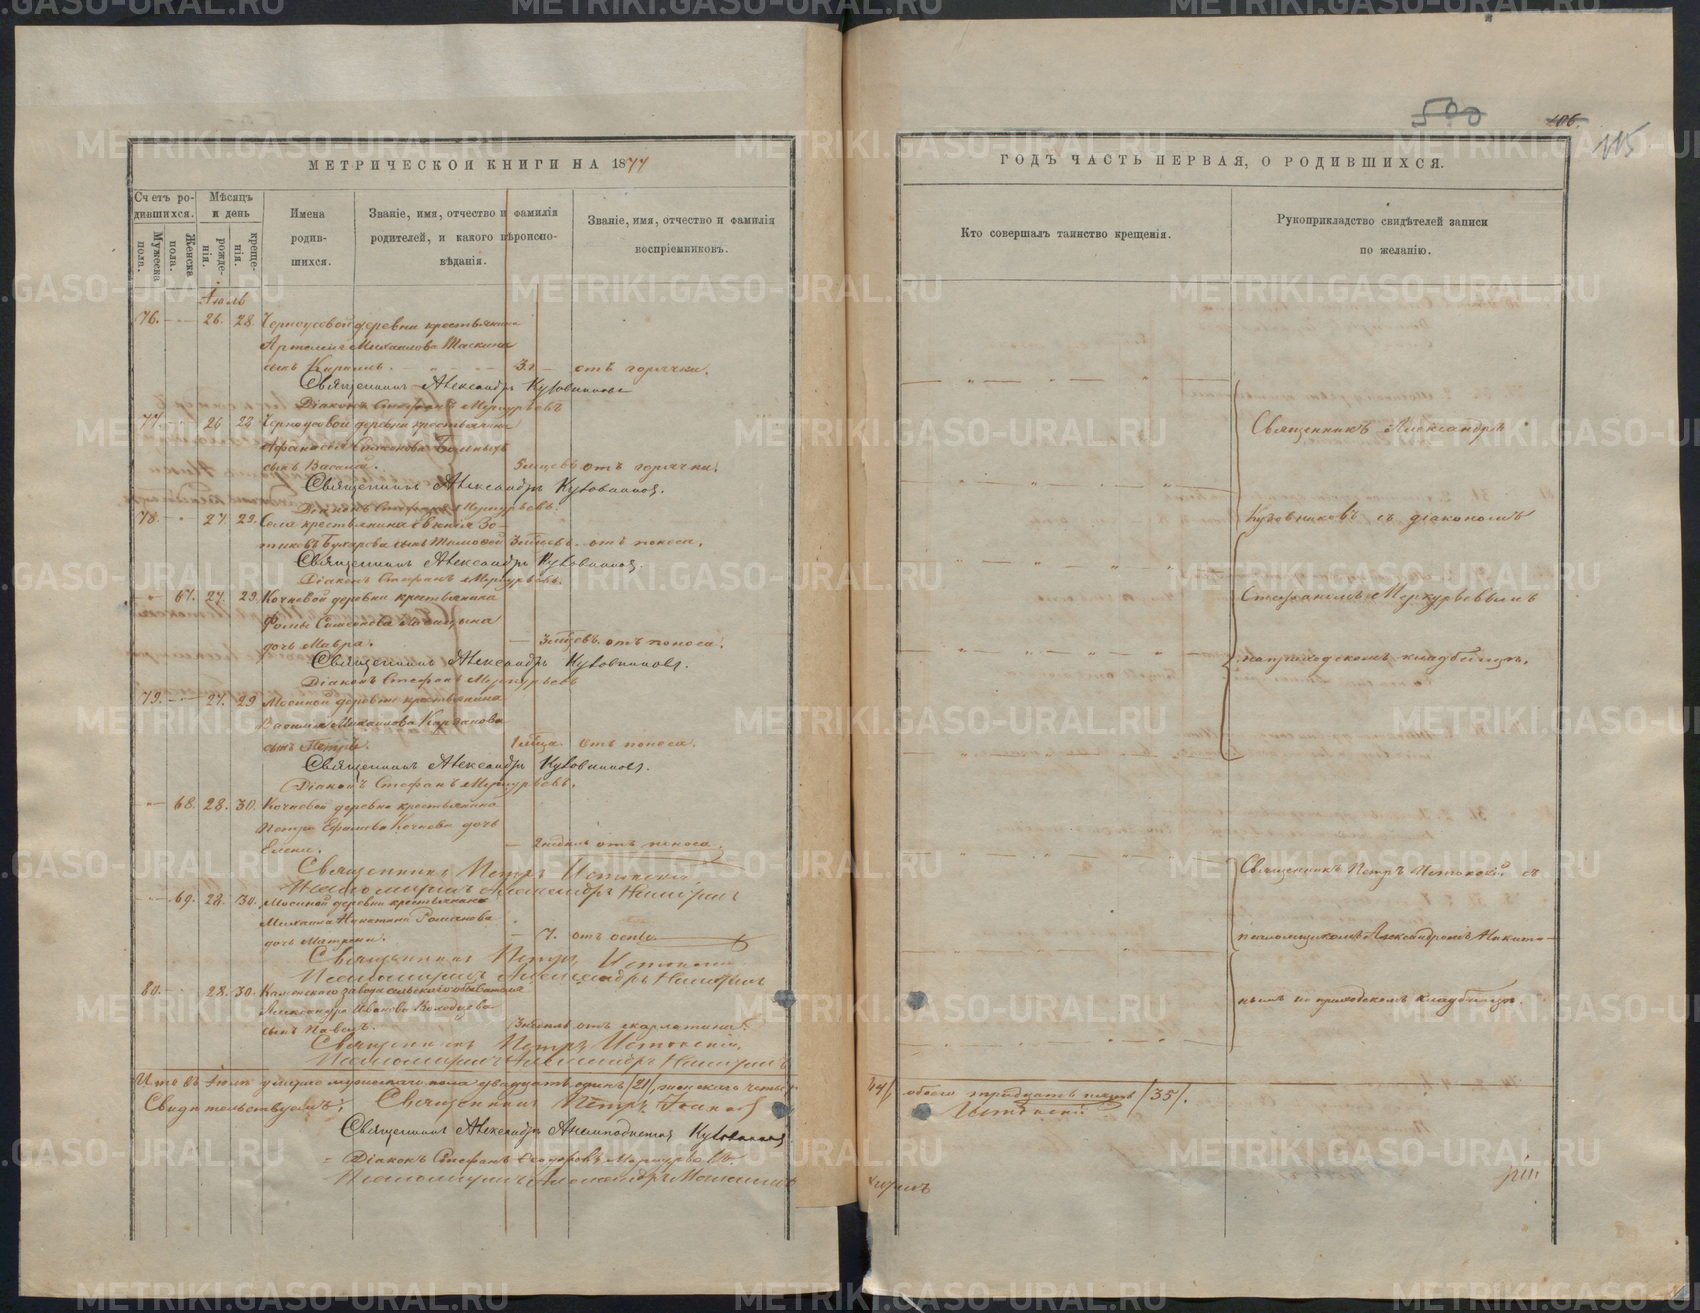 METRIKI.GASO-URAL.RU
500
106.
115
МЕТРИЧЕСКОЙ КНИГИ НА 1877
Счетъ ро-
дившихся.
Мужеска
пола.
Женска
пола.
Мѣсяцъ
и день
рожде-
нія.
креще-
нія.
Имена
родив-
шихся.
Званіе, имя, отчество и фамилія
родителей, и какого вѣроиспо-
вѣданія.
Званіе, имя, отчество и фамилія
воспріемниковъ.
Іюль
76. 26. 28. Черноусовой деревни крестьянина
Артемія Михаилова Таскина
сынъ Кириллъ. 3 г. отъ горячки.
Священникъ Александръ Кузовниковъ
Діаконъ Стефанъ Меркурьевъ
77. 26 28 Черноусовой деревни крестьянина
Афанасія Симеонова Больныхъ
сынъ Василій. отъ горячки.
Священникъ Александръ Кузовниковъ.
Діаконъ Стефанъ Меркурьевъ.
78. 27. 29. Села крестьянина Евгенія Зо-
тикова Бухарова сынъ Тимофей 3 мѣсевъ. отъ поноса.
Священникъ Александръ Кузовниковъ.
Діаконъ Стефанъ Меркурьевъ.
67. 27. 29. Кочневой деревни крестьянина
Фомы Симеонова
дочь Мавра. 3 мѣсевъ. отъ поноса.
Священникъ Александръ Кузовниковъ.
Діаконъ Стефанъ Меркурьевъ
79. 27. 29 Мосиной деревни крестьянина
Василія Михаилова
сынъ Петръ. 1 мѣсца. отъ поноса.
Священникъ Александръ Кузовниковъ.
Діаконъ Стефанъ Меркурьевъ.
68. 28. 30. Кочневой деревни крестьянина
Петра Ефимова Кочнева дочь
Елена. 2 недѣль отъ поноса.
Священникъ Петръ Истокскій
Псаломщикъ Александръ Никитинъ
69. 28. 30. Мосиной деревни крестьянина
Михаила Никитина Романова
дочь Матрона. 7. отъ оспы.
Священникъ Петръ Истокскій
Псаломщикъ Александръ Никитинъ
80. 28. 30. Каменскаго завода сельскаго обывателя
Александра Иванова Володцева
сынъ Павелъ. 3 недѣль отъ скарлатины.
Священникъ Петръ Истокскій.
Псаломщикъ Александръ Никитинъ
Итого въ Іюлѣ умерло мужескаго пола двадцать одинъ /21/, женскаго четыр-
Свидѣтельствуемъ: Священникъ Петръ
Священникъ Александръ Кузовниковъ
Діаконъ Стефанъ Меркурьевъ.
Псаломщикъ Александръ
ГОДЪ ЧАСТЬ ПЕРВАЯ, О РОДИВШИХСЯ.
Кто совершалъ таинство крещенія.
Рукоприкладство свидѣтелей записи
по желанію.
Священникъ Александръ
Кузовниковъ съ діакономъ
Стефаномъ Меркурьевымъ
на приходскомъ кладбищѣ.
Священникъ Петръ Истокскій съ
псаломщикомъ Александромъ Никити-
нымъ на приходскомъ кладбищѣ.
обоего тридцать пять /35/.
Истокскій